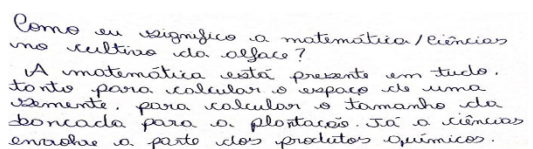 Como eu significo a matemática/ciências
no cultivo da alface?
A matemática está presente em tudo.
tanto para calcular o espaço de uma
semente, para calcular o tamanho da
bancada para a plantação. Já a ciências
envolve a parte dos produtos químicos.